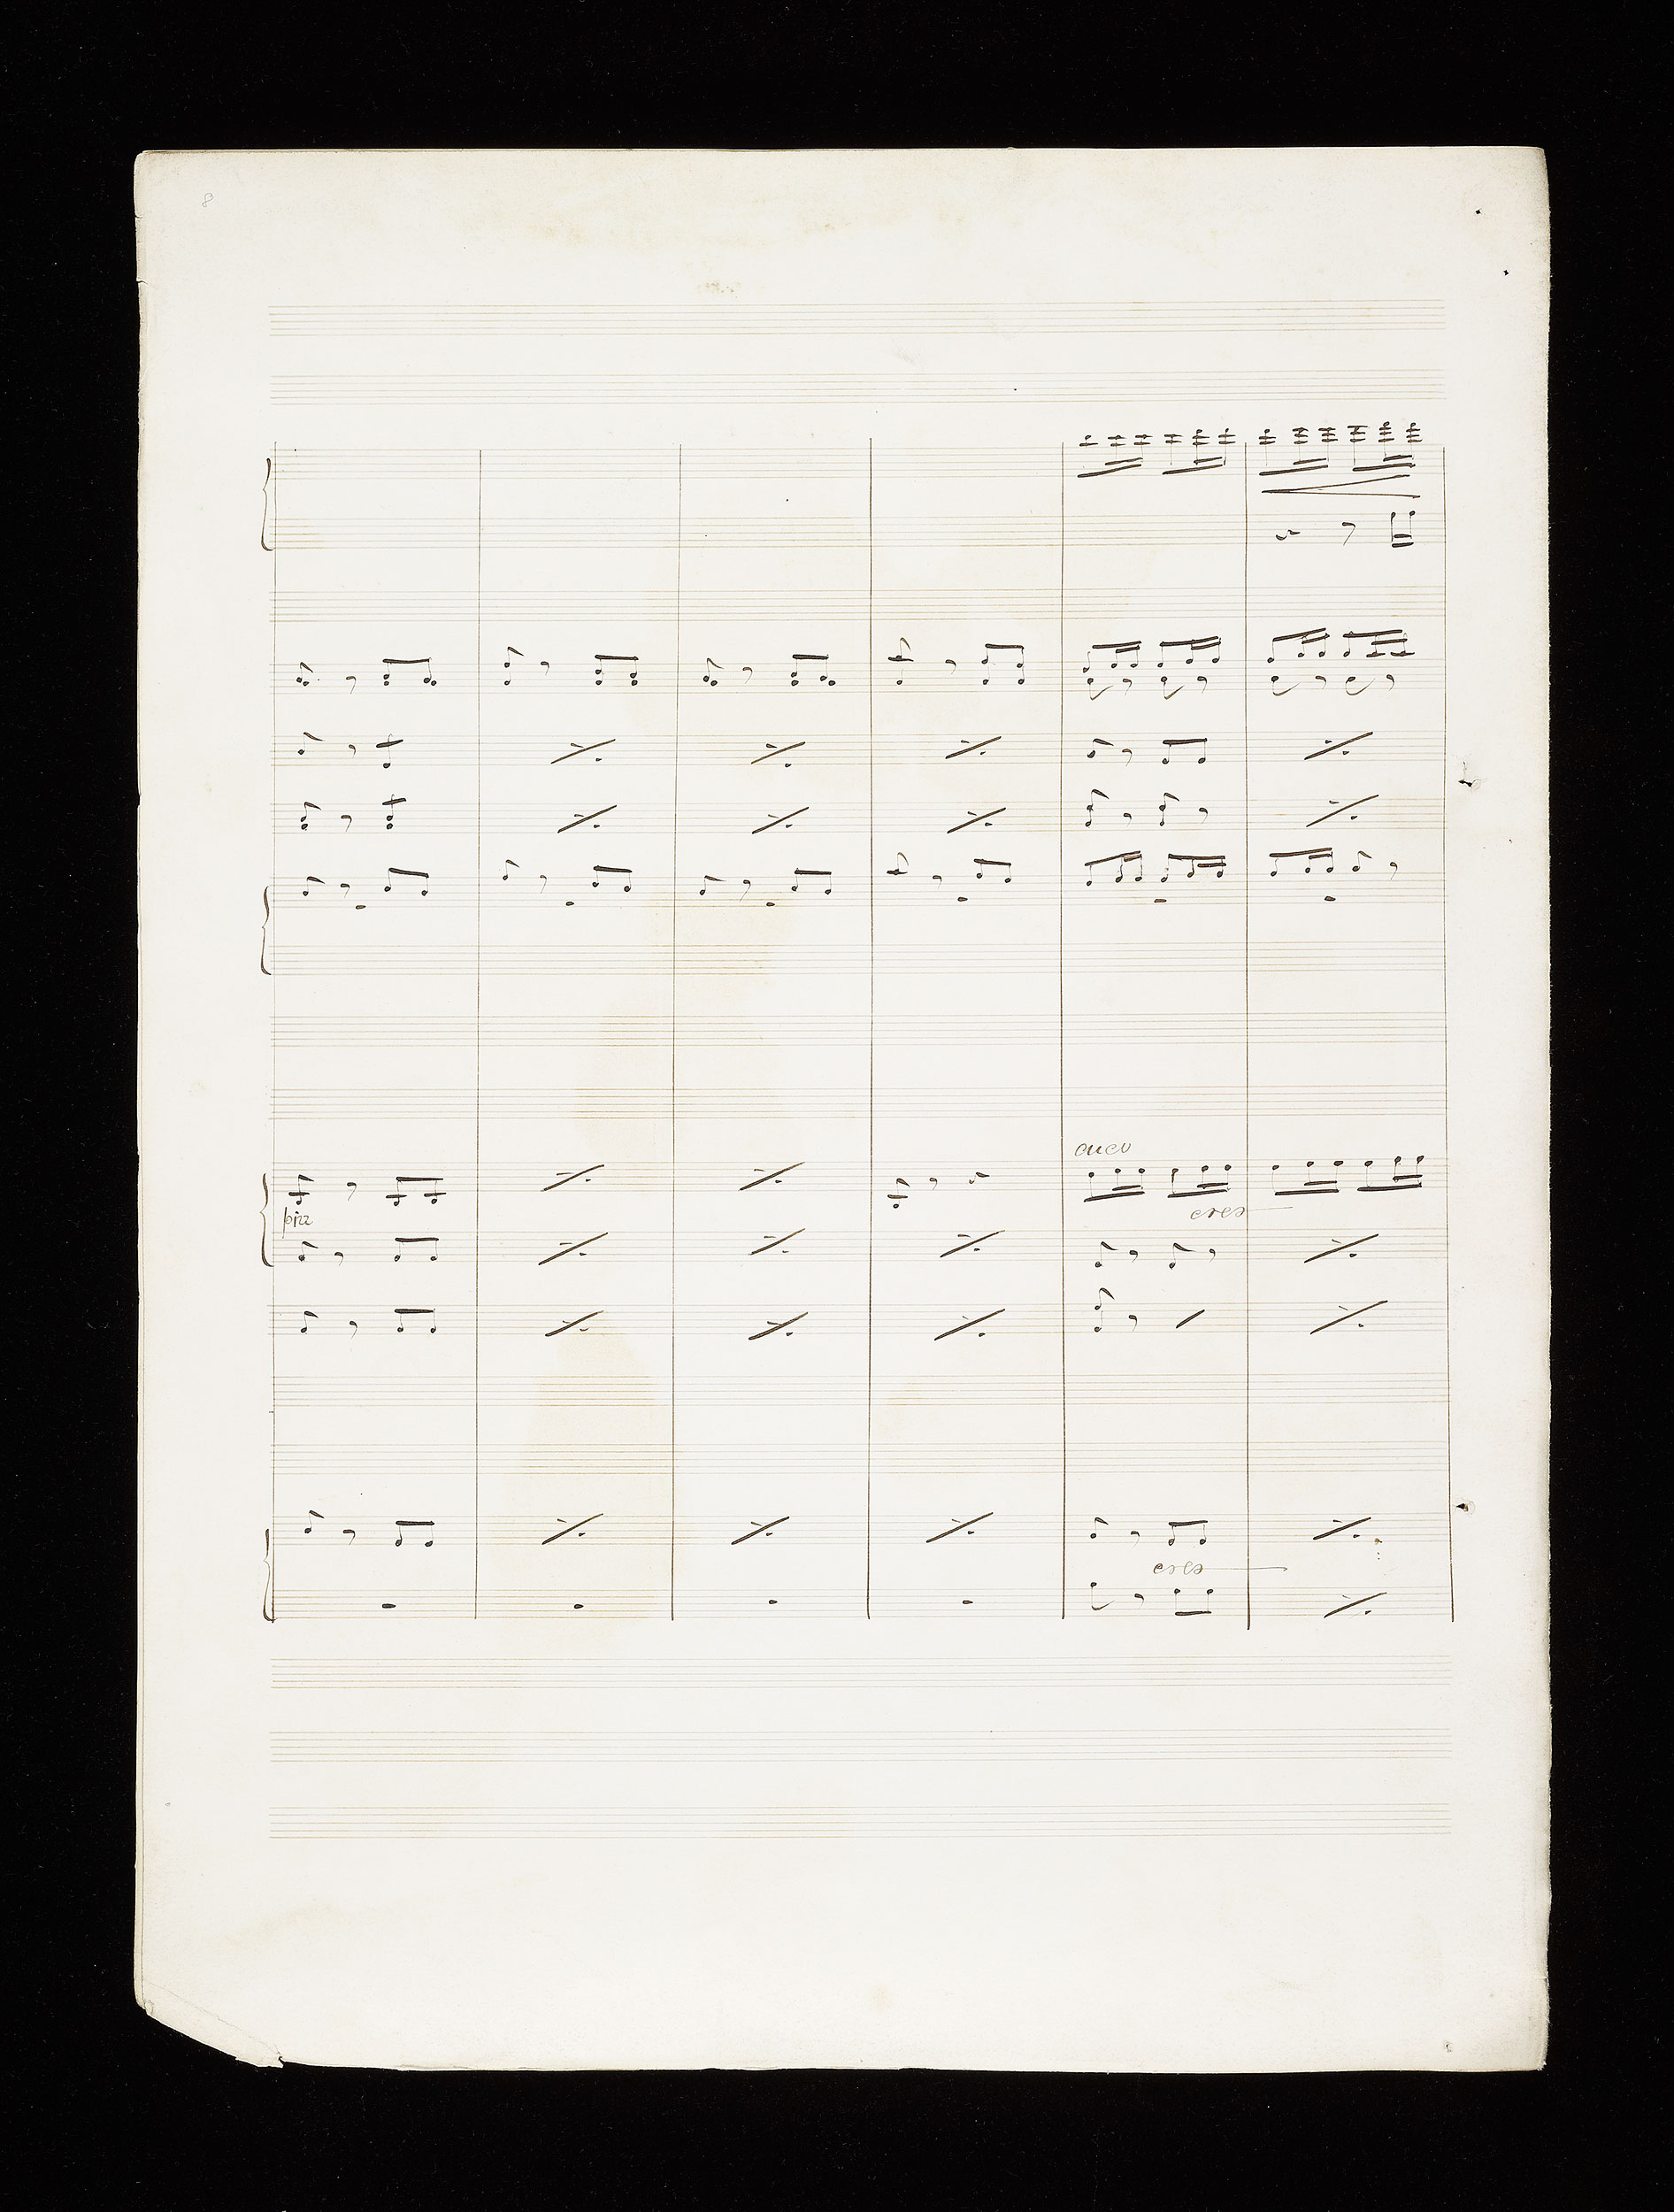 8
arco
cres
pizz
cres